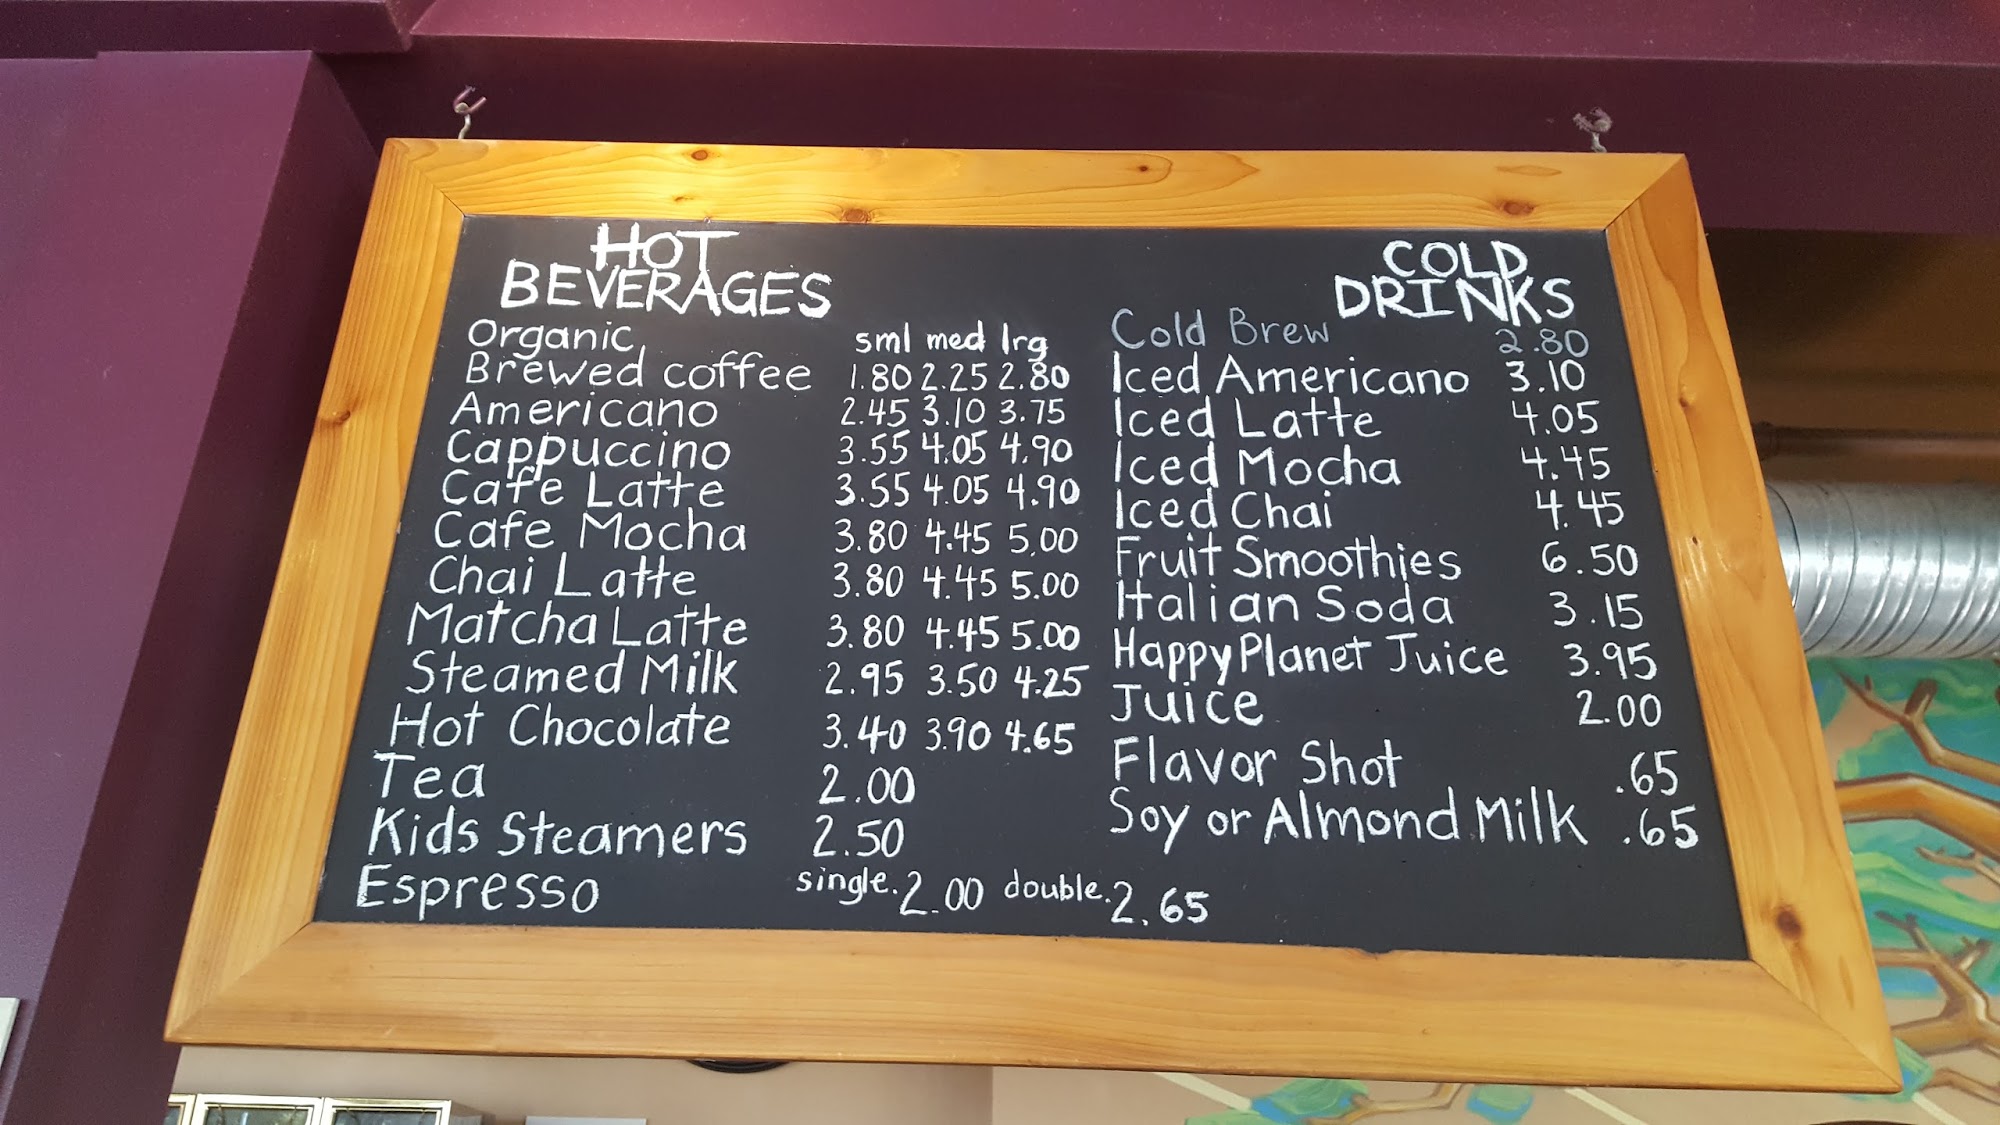 HOT
BEVERAGES
Organic sml med lrg
Brewed coffee 1.80 2.25 2.80
Americano 2.45 3.10 3.75
Cappuccino 3.55 4.05 4.90
Cafe Latte 3.55 4.05 4.90
Cafe Mocha 3.80 4.45 5.00
Chai Latte 3.80 4.45 5.00
Matcha Latte 3.80 4.45 5.00
Steamed Milk 2.95 3.50 4.25
Hot Chocolate 3.40 3.90 4.65
Tea 2.00
Kids Steamers 2.50
Espresso single. 2.00 double. 2.65
COLD
DRINKS
Cold Brew 2.80
Iced Americano 3.10
Iced Latte 4.05
Iced Mocha 4.45
Iced Chai 4.45
Fruit Smoothies 6.50
Italian Soda 3.15
Happy Planet Juice 3.95
Juice 2.00
Flavor Shot .65
Soy or Almond Milk .65